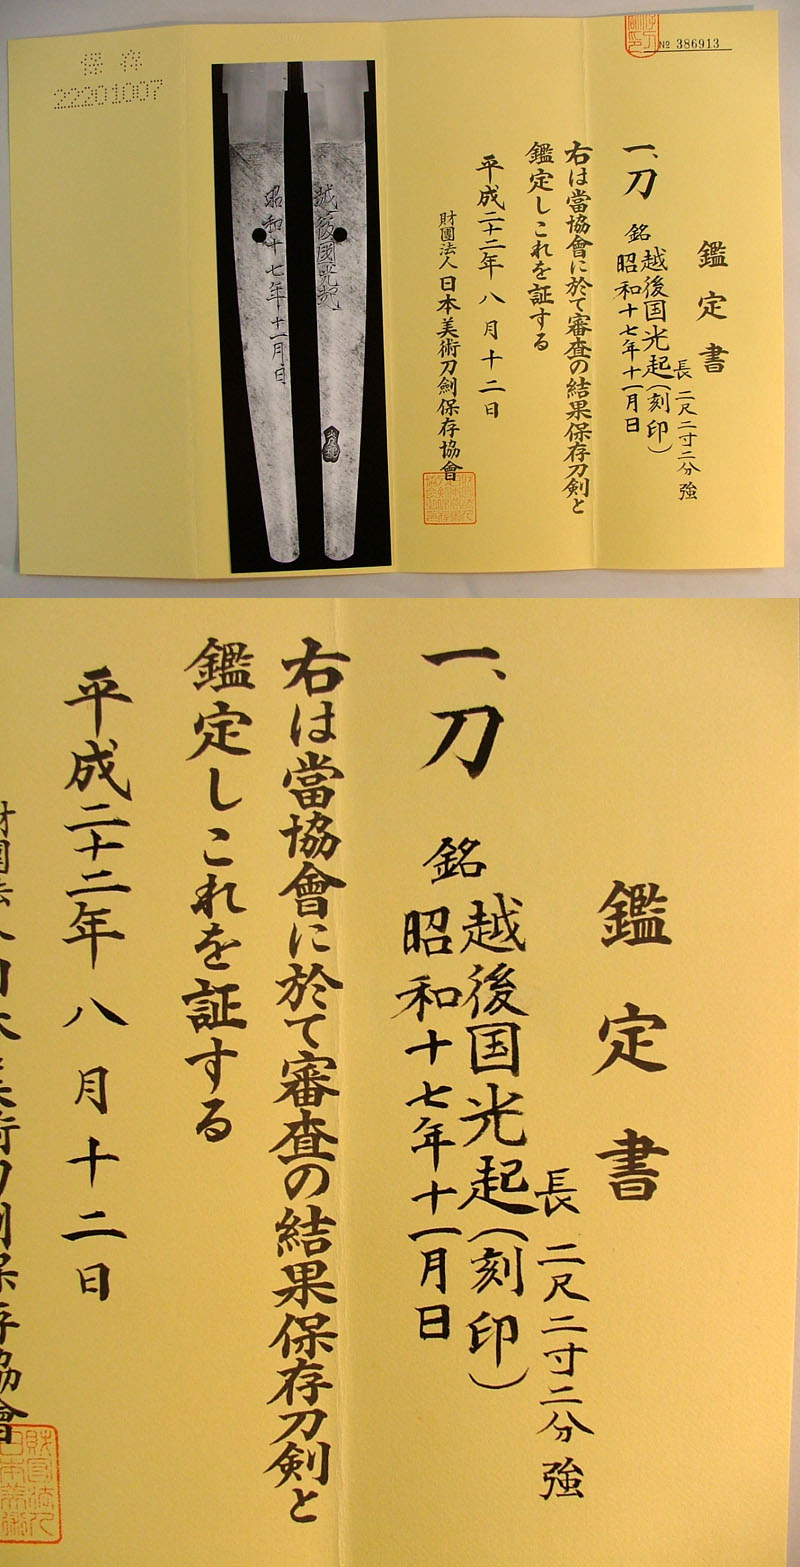 保存
22201007
№ 386913
鑑定書
一、刀
長 二尺二寸二分強
銘
越後国光起(刻印)
昭和十七年十一月日
右は當協會に於て審査の結果保存刀剣と
鑑定しこれを証する
平成二十二年八月十二日
財團法人日本美術刀劍保存協會
越後國光起
昭和十七年十一月日
鑑定書
一、刀
長 二尺二寸二分強
銘
越後国光起(刻印)
昭和十七年十一月日
右は當協會に於て審査の結果保存刀剣と
鑑定しこれを証する
平成二十二年八月十二日
財團法人日本美術刀劍保存協會